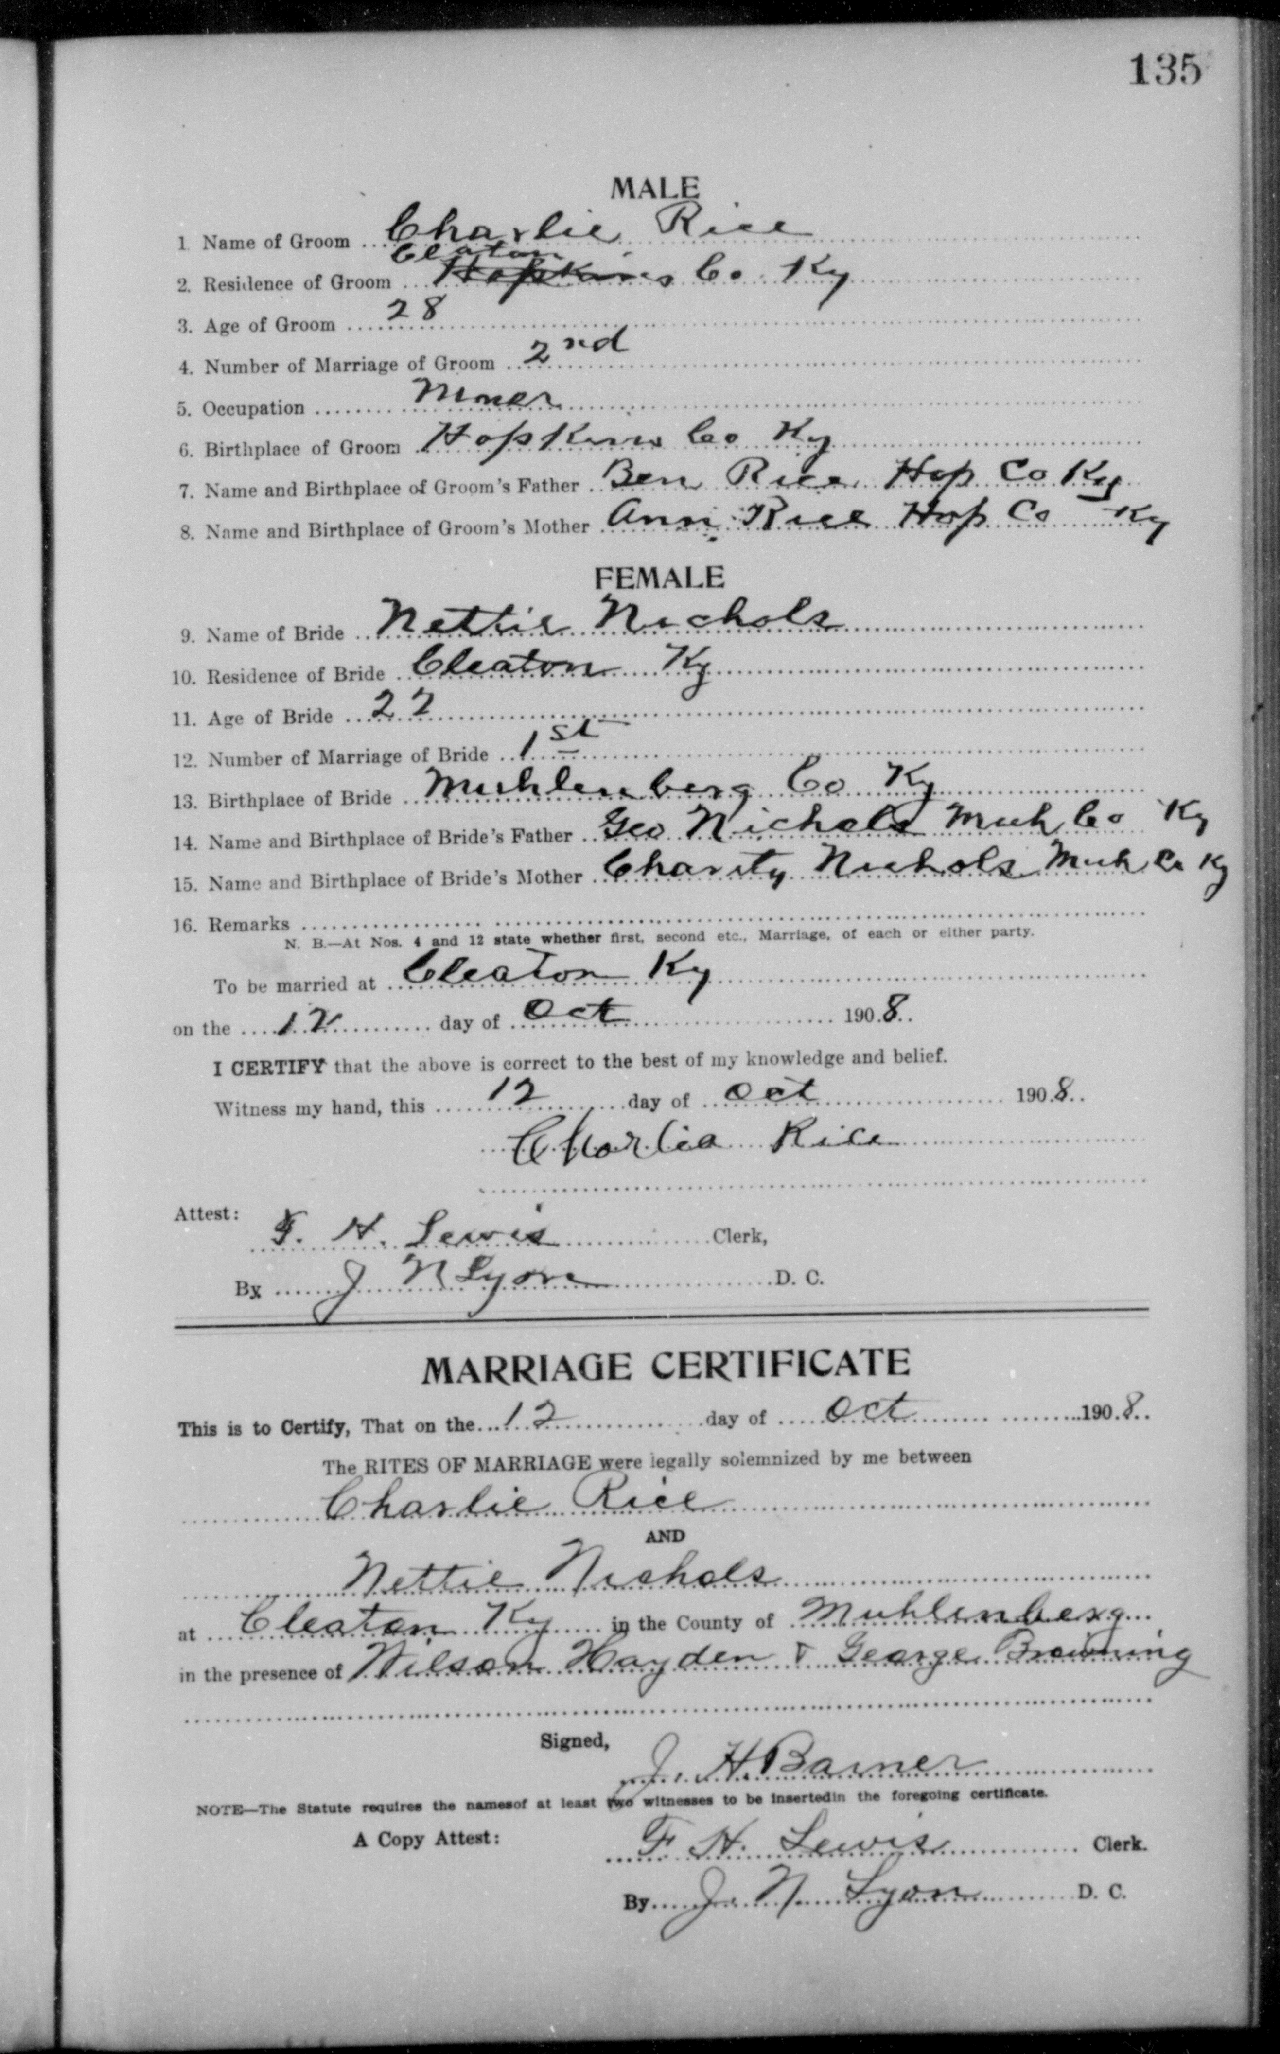 135
MALE
1. Name of Groom Charlie Rice
Cleaton
2. Residence of Groom Hopkins Co Ky
3. Age of Groom 28
4. Number of Marriage of Groom 2nd
5. Occupation Miner
6. Birthplace of Groom Hopkins Co Ky
7. Name and Birthplace of Groom's Father Ben Rice Hop Co Ky
8. Name and Birthplace of Groom's Mother Ann Rice Hop Co Ky
FEMALE
9. Name of Bride Nettie Nichols
10. Residence of Bride Cleaton Ky
11. Age of Bride 22
12. Number of Marriage of Bride 1st
13. Birthplace of Bride Muhlenberg Co Ky
14. Name and Birthplace of Bride's Father Geo Nichols Muh Co Ky
15. Name and Birthplace of Bride's Mother Charity Nichols Muh Co Ky
16. Remarks
N. B.—At Nos. 4 and 12 state whether first, second etc., Marriage, of each or either party.
To be married at Cleaton Ky
on the 12 day of Oct 1908
I CERTIFY that the above is correct to the best of my knowledge and belief.
Witness my hand, this 12 day of Oct 1908
Charlie Rice
Attest:
F. H. Lewis Clerk,
By J N Lyon D. C.
MARRIAGE CERTIFICATE
This is to Certify, That on the 12 day of Oct 1908
The RITES OF MARRIAGE were legally solemnized by me between
Charlie Rice
AND
Nettie Nichols
at Cleaton Ky in the County of Muhlenberg
in the presence of Wilson Hayden & George Browning
Signed,
J. H. Barner
NOTE—The Statute requires the namesof at least two witnesses to be insertedin the foregoing certificate.
A Copy Attest:
F H. Lewis Clerk.
By J. N. Lyon D. C.